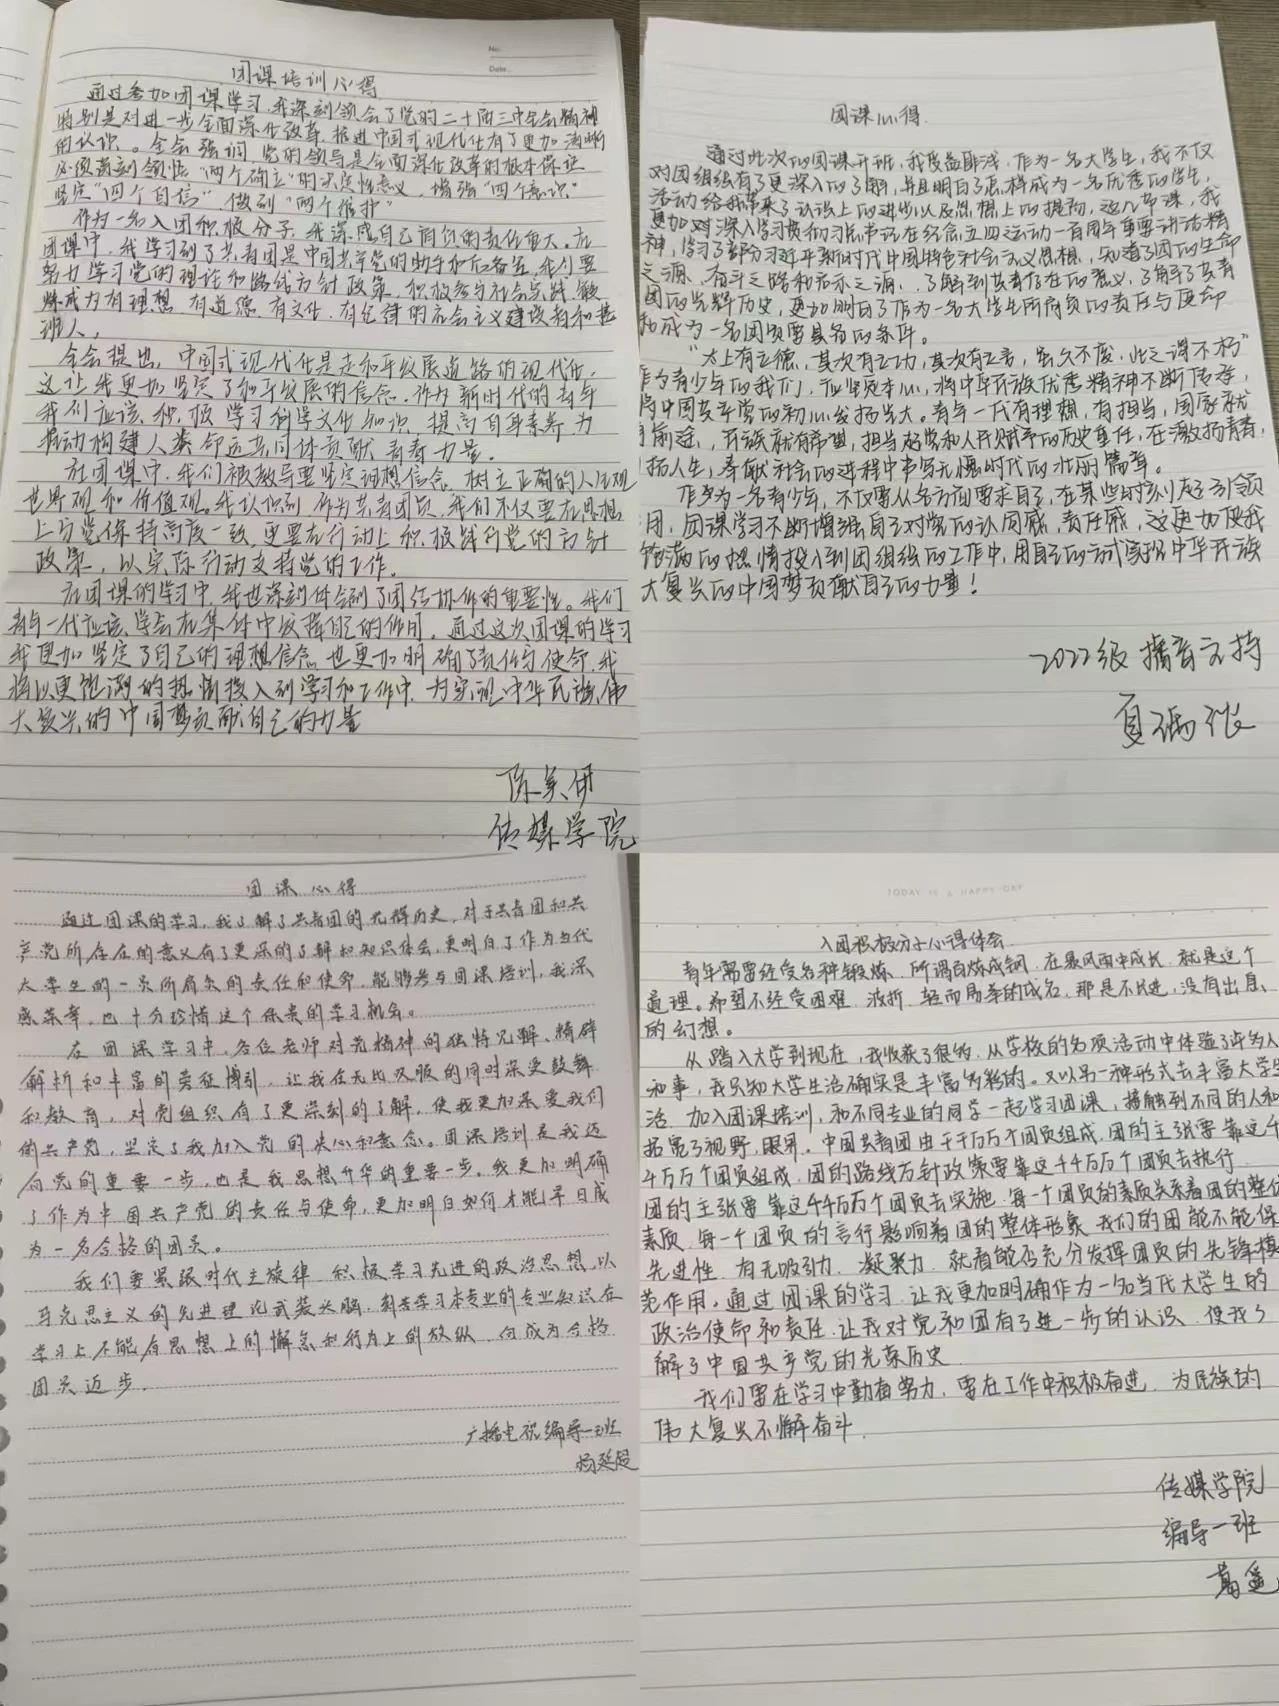 No:
Date:
团课培训心得
通过参加团课学习,我深刻领会了党的二十届三中全会精神
特别是对进一步全面深化改革、推进中国式现代化有了更加清晰
的认识。全会强调,党的领导是全面深化改革的根本保证
必须深刻领悟“两个确立”的决定性意义,增强“四个意识”
坚定“四个自信”,做到“两个维护”
作为一名入团积极分子,我深感自己肩负的责任重大。在
团课中,我学习到了共青团是中国共产党的助手和后备军,我们要
努力学习党的理论和路线方针政策,积极参与社会实践,锻
炼成为有理想、有道德、有文化、有纪律的社会主义建设者和接
班人。
全会提出,中国式现代化是走和平发展道路的现代化,
这让我更加坚定了和平发展的信念。作为新时代的青年
我们应该积极学习科学文化知识,提高自身素养为
推动构建人类命运共同体贡献青春力量。
在团课中,我们被教导要坚定理想信念,树立正确的人生观
世界观和价值观。我认识到,作为共青团员,我们不仅要在思想
上与党保持高度一致,更要在行动上积极践行党的方针
政策,以实际行动支持党的工作。
在团课的学习中,我也深刻体会到了团结协作的重要性。我们
青年一代应该学会在集体中发挥自己的作用。通过这次团课的学习
我更加坚定了自己的理想信念,也更加明确了责任与使命,我
将以更饱满的热情投入到学习和工作中,为实现中华民族伟
大复兴的中国梦贡献自己的力量
传媒学院
团课心得
通过此次的团课开班,我受益匪浅。作为一名大学生,我不仅
对团组织有了更深入的了解,并且明白了怎样成为一名优秀的学生,
活动给我带来了认识上的进步以及思想上的提高,这几节课,我
更加对深入学习贯彻习总书记在纪念五四运动一百周年重要讲话精
神,学习了部分习近平新时代中国特色社会主义思想,知道了团的生命
之源、奋斗之路和启示之源,了解到共青存在的意义,了解了共青
团的光辉历史,更加明白了作为一名大学生所肩负的责任与使命
和成为一名团员要具备的条件。
“太上有立德,其次有立功,其次有立言,虽久不废,此之谓不朽”
作为青少年的我们,应坚定本心,将中华民族优秀精神不断传承,
将中国共产党的初心发扬光大。青年一代有理想,有担当,国家就
有前途,民族就有希望,担当起党和人民赋予的历史重任,在激扬青春,
扬人生,奉献社会的进程中书写无愧时代的壮丽篇章。
作为一名青少年,不仅要从各方面要求自己,在某些时刻起到引领
用,团课学习不断增强自己对党的认同感,责任感,这更加使我
饱满的热情投入到团组织的工作中,用自己的方式实现中华民族
大复兴的中国梦贡献自己的力量!
2022级播音主持
团课心得
通过团课的学习,我了解了共青团的光辉历史,对于共青团和共
产党所存在的意义有了更深的了解和知识体会,更明白了作为当代
大学生的一员所肩负的责任和使命,能够参与团课培训,我深
感荣幸,也十分珍惜这个保贵的学习机会。
在团课学习中,各位老师对党精神的独特见解、精辟
解析和丰富的旁征博引,让我在无比叹服的同时深受鼓舞
和教育,对党组织有了更深刻的了解,使我更加深爱我们
的共产党,坚定了我加入党的决心和意念。团课培训是我迈
向党的重要一步,也是我思想升华的重要一步。我更加明确
了作为中国共产党的责任与使命,更加明白如何才能早日成
为一名合格的团员。
我们要紧跟时代主旋律,积极学习先进的政治思想,以
马克思主义的先进理论武装头脑,刻苦学习本专业的专业知识在
学习上不能有思想上的懈怠和行为上的放纵,向成为合格
团员迈步。
广播电视编导一班
杨延超
TODAY IS A HAPPY DAY
入团积极分子心得体会
青年需要经受各种锻炼,所谓百炼成钢,在暴风雨中成长,就是这个
道理。希望不经受困难、波折,轻而易举的成名,那是不长进,没有出息、
的幻想。
从踏入大学到现在,我收获了很多,从学校的各项活动中体验了许多人
和事,我只知大学生活确实是丰富多彩的。又以另一种形式去丰富大学生
活,加入团课培训,和不同专业的同学一起学习团课,接触到不同的人和
拓宽了视野,眼界。中国共青团由千千万万个团员组成,团的主张要靠这千
千万万个团员组成,团的路线方针政策要靠这千千万万个团员去执行
团的主张要靠这千千万万个团员去实施,每一个团员的素质关系着团的整体
素质,每一个团员的言行影响着团的整体形象,我们的团能不能保
先进性,有无吸引力,凝聚力,就看能否充分发挥团员的先锋模
范作用。通过团课的学习,让我更加明确作为一名当代大学生的
政治使命和责任,让我对党和团有了进一步的认识,使我了
解了中国共产党的光荣历史
我们要在学习中勤奋努力,要在工作中积极奋进,为民族的
伟大复兴不懈奋斗。
传媒学院
编导一班
葛遥